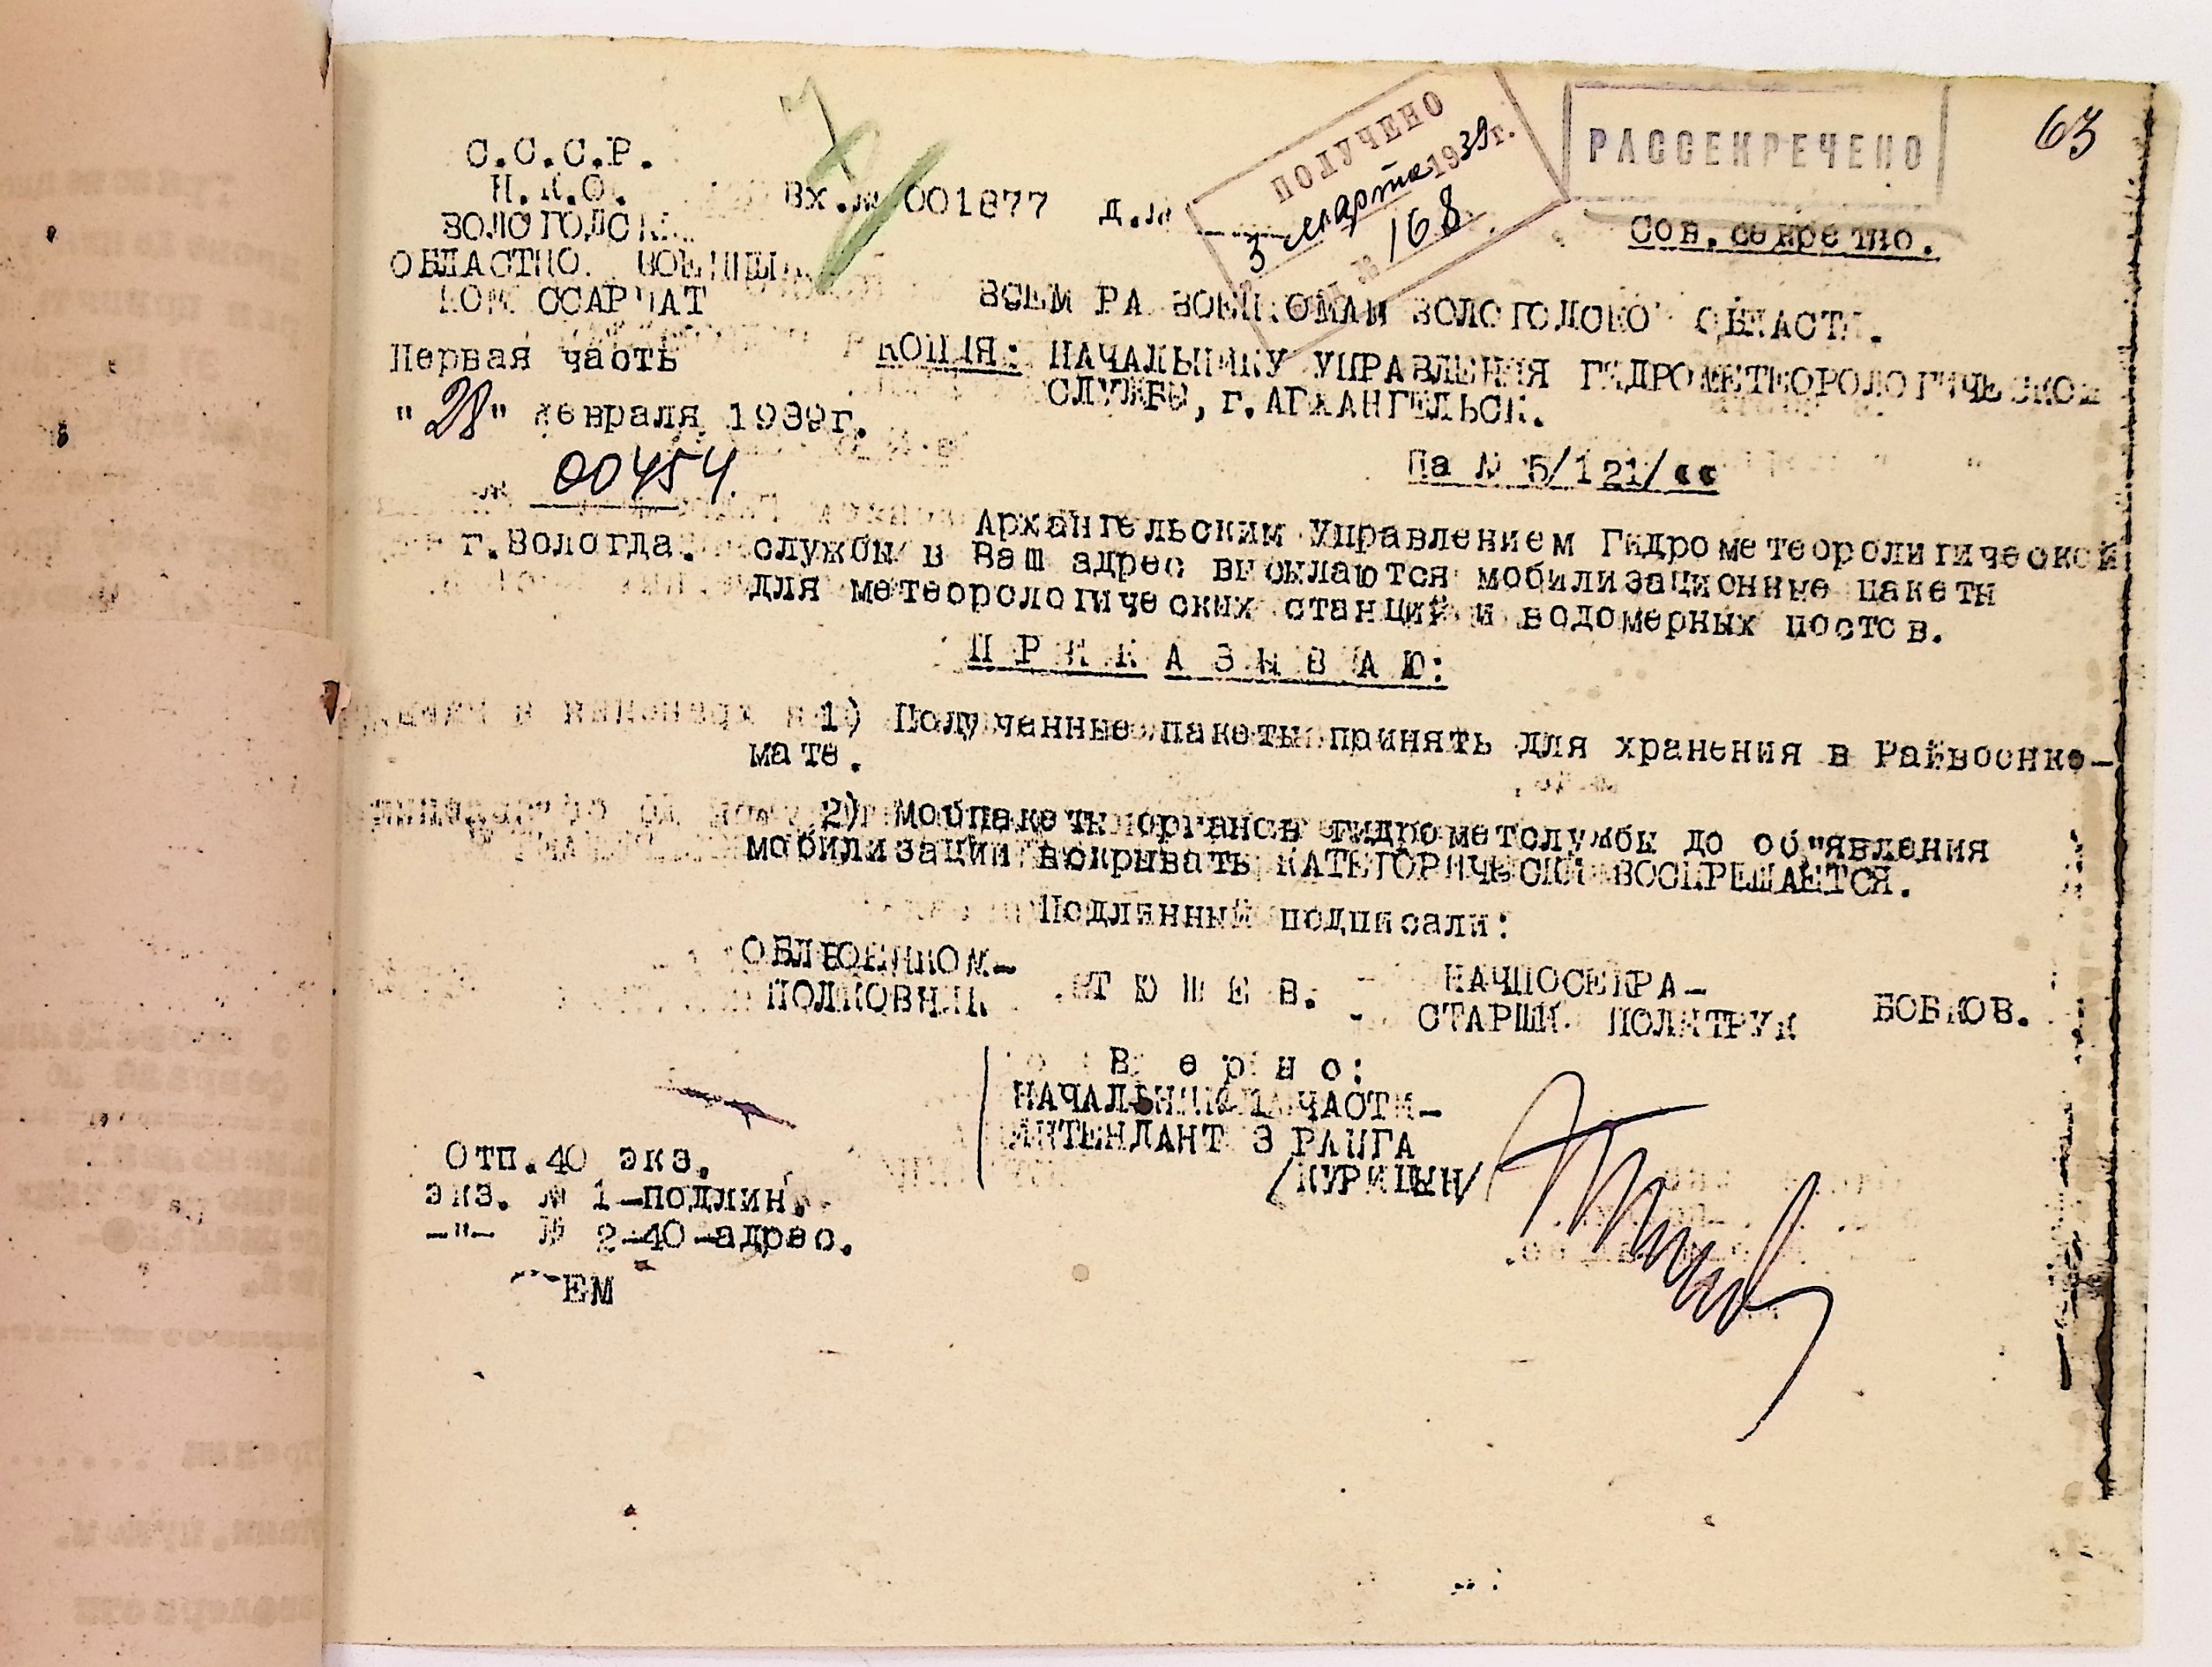 63
РАССЕКРЕЧЕНО
ПОЛУЧЕНО
3 марта 1939г.
№ 168
Сов.секретно.
С.С.С.Р.
Н.К.О.
ВОЛОГОДСК
ОБЛАСТНО. ВОЕННЫ
КОМ ССАРИАТ
Первая часть
"28" февраля 1939г.
№ 00454
г.Вологда.
Вх.№ 001877 д.№
ВСЕМ РА ВОЕНКОМАМ ВОЛОГОДСКО ОБЛАСТИ.
КОПИЯ: НАЧАЛЬНИКУ УПРАВЛЕНИЯ ГИДРОМЕТЕОРОЛОГИЧЕСКОЙ
СЛУЖБЫ, г.АРХАНГЕЛЬСК.
На № 5/121/сс
Архангельским Управлением Гидрометеоролигической
службы в Ваш адрес высылаются мобилизационные пакеты
для метеорологических станций и водомерных постов.
П Р И К А З Ы В А Ю:
1) Полученные пакеты принять для хранения в Райвоенко-
мате.
2) Мобпакеты органов гидрометслужбы до об"явления
мобилизации вскрывать КАТЕГОРИЧЕСКИ ВОСПРЕЩАЕТСЯ.
Подлинный подписали:
ОБЛВОЕНКОМ-
ПОЛКОВНИК Т Ю Ш Е В.
НАЧПОСЕКРА-
СТАРШИ. ПОЛИТРУК БОБКОВ.
В е р н о:
НАЧАЛЬНИК 1 ЧАСТИ-
ИНТЕНДАНТ 3 РАНГА
/КУРИЦЫН/
Отп.40 экз.
экз. № 1-подлин.
-"- № 2-40-адрес.
ЕМ